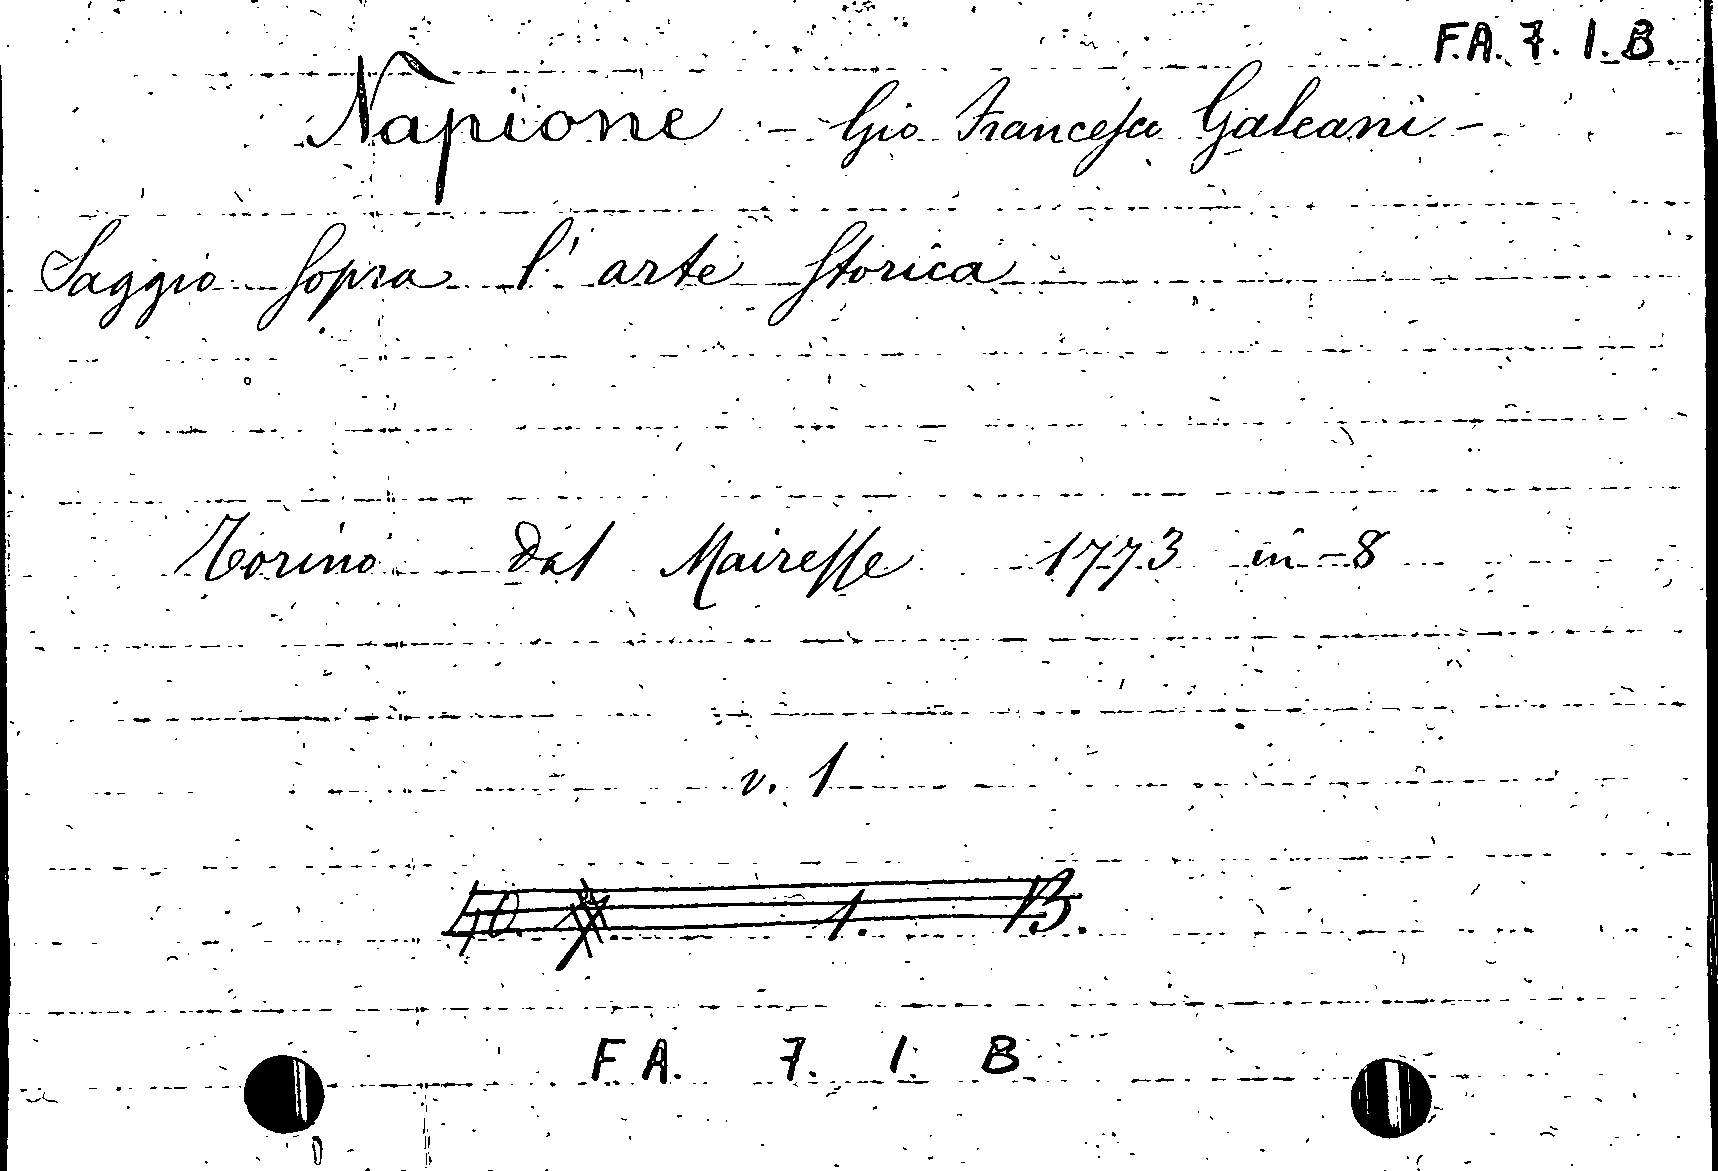 F.A. 7. 1. B
Napione - Gio Francesco Galeani -
Saggio sopra l'arte storica
Torino dal Mairesse 1773 in-8
v. 1
F A. 7. 1. B